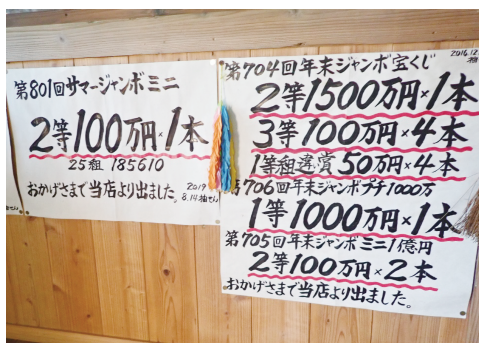 第801回サマージャンボミニ
2等100万円×1本
25組 185610
おかげさまで当店より出ました。
2019
8.14抽せん
第704回年末ジャンボ宝くじ
2016.12.
2等1500万円×1本
3等100万円×4本
1等組違賞50万円×4本
第706回年末ジャンボプチ1000万
1等1000万円×1本
第705回年末ジャンボミニ1億円
2等100万円×2本
おかげさまで当店より出ました。